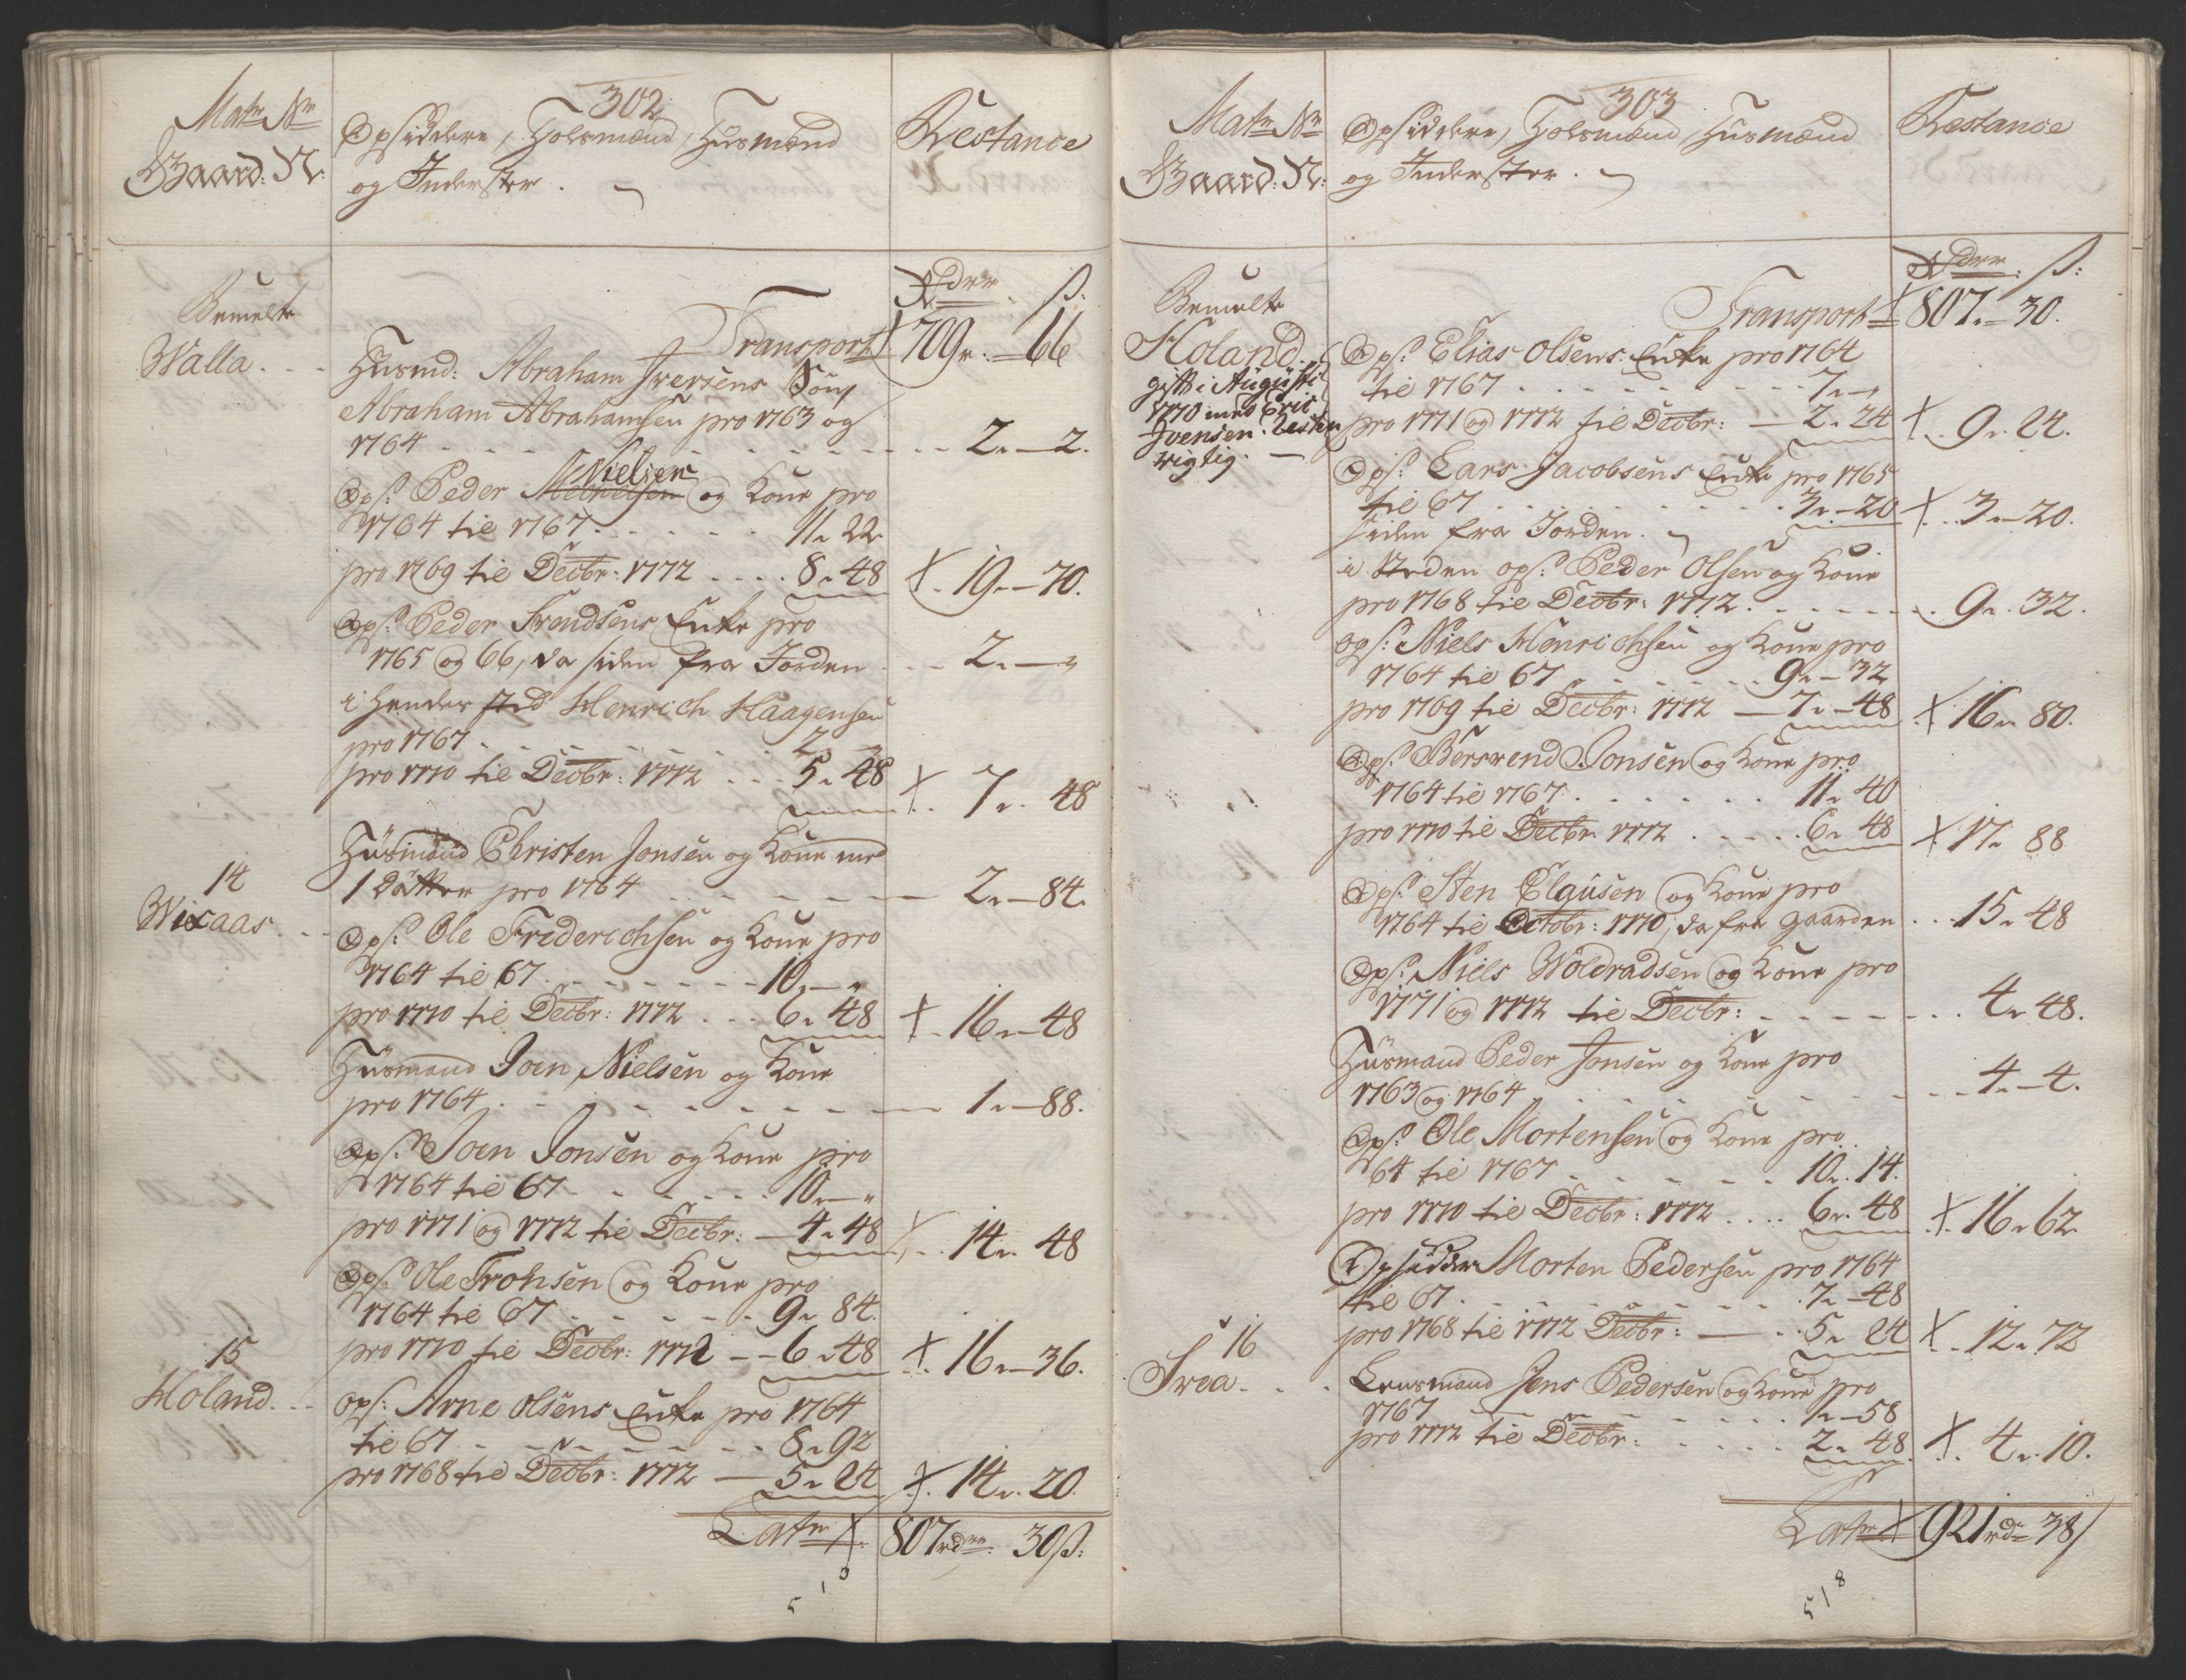 302
Matr Nr
Gaard: N:
Opsiddere, Holsmænd, Husmænd
og Inderster.
Restance
Rdrr. ß:
Bemelte
Walla. - -
Transport 709r. — 66
Husmd: Abraham Iversens Søn
Abraham Abrahamsen pro 1763 og
1764 - - - - 2. — 2.
Nielsen
Ops: Peder og Kone pro
1764 til 1767 - - - 11. 22
pro 1769 til Decbr: 1772 .... 8. 48 X. 19. — 70.
Ops: Peder Trendsens Enke pro
1765 og 66, da siden fra Jorden - - 2. — „
i hendes sted Henrich Haagensen
pro 1767 - - - 2. —
pro 1770 til Decbr: 1772 ... 5. 48 X. 7. 48
Husmand Christen Jonsen og Kone med
14
1 Datter pro 1764 - - - 2. — 84.
Wixaas - -
Ops: Ole Friderichsen og Kone pro
1764 til 67 - - - 10. — „
pro 1770 til Decbr: 1772 ... 6. 48 X. 16. — 48
Husmand Joen Nielsen og Kone
pro 1764 - - - 1. — 88.
Ops: Joen Jonsen og Kone pro
1764 til 67 - - - 10. — „
pro 1771 og 1772 til Decbr: — 4. 48 X. 14. 48
Ops: Ole Trohsen og Kone pro
1764 til 67 - - - 9. 84.
15
pro 1770 til Decbr: 1772 - - 6. 48 X. 16. — 36.
Holand. - -
Ops: Arne Olsens Enke pro 1764
til 67 - - - 8. 92
pro 1768 til Decbr: 1772 — 5. 24 X. 14. 20.
Latr X. 807rdrr. 30ß:
518
303
Matr Nr
Gaard: N:
Opsiddere, Holsmænd, Husmænd
og Inderster.
Restance
Rdrr. ß:
Bemelte
Transport X 807. — 30.
Holand.
gift i Augusti
1770 med Eric
Ivensen.
rigtig. —
Ops: Elias Olsens Enke pro 1764
til 1767 - - - 7. — „
pro 1771 og 1772 til Decbr: — 2. 24 X. 9. 24.
Ops: Lars Jacobsens Enke pro 1765
til 67 - - - 3. — 20 X. 3. — 20.
siden fra Jorden.
i Steden ops: Peder Olsen og Kone
pro 1768 til Decbr: 1772 - - - 9. 32.
Ops: Niels Henrichsen og Kone pro
1764 til 67 - - - 9. — 32
pro 1769 til Decbr: 1772 — 7. — 48 X. 16. 80.
Ops: Berrend Jonsen og Kone pro
1764 til 1767 - - - 11. 40
pro 1770 til Decbr 1772 .... 6. 48 X 17. 88
Ops: Sten Clausen og Kone pro
1764 til Octobr: 1770, da fra Gaarden ... 15. 48
Ops: Niels Woldradsen og Kone pro
1771 og 1772 til Decbr: - - - 4. 48.
Husmand Peder Jonsen og Kone pro
1763 og 1764 - - - 4. — 4.
Ops: Ole Mortensen og Kone pro
64 til 1767 - - - 10. 14.
pro 1770 til Decbr: 1772 .... 6. 48 X. 16. 62
Opsidder Morten Pedersen pro 1764
til 67 - - - 7. — 48
pro 1768 til 1772 Decbr: — 5. 24 X. 12. 72
16
Trea. - -
Lensmand Jens Pedersen og Kone pro
1767 - - - 1. — 58
pro 1772 til Decbr: - - - 2. 48 X. 4. 10.
Latr X 921rdr 38ß
518